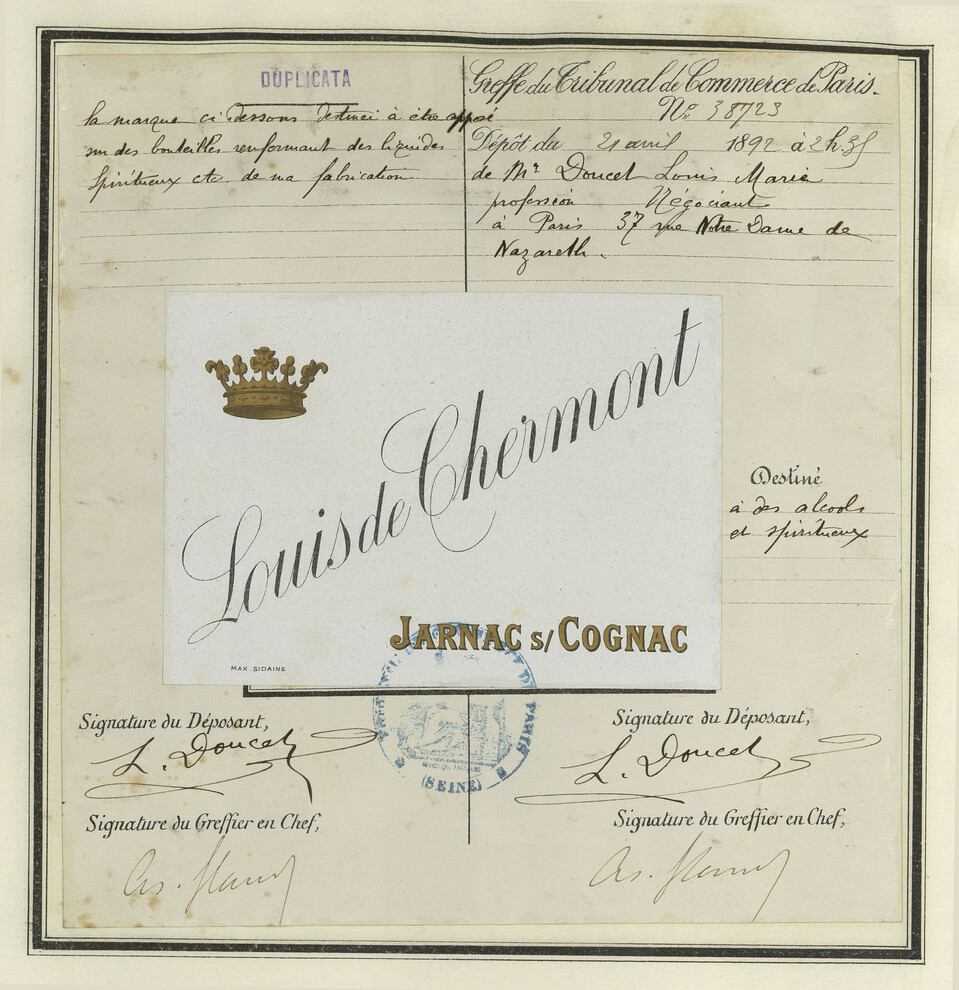 DUPLICATA
la marque ci dessous destinée à être apposé
sur des bouteilles renfermant des liquides
Spiritueux etc. de ma fabrication
Greffe du Tribunal de Commerce de Paris.
No. 38723
Dépôt du 21 avril 1892 à 2h.35
de Mr Doucet Louis Marie
profession Négociant
à Paris 37 rue Notre Dame de
Nazareth.
Louis de Chermont
JARNAC S/ COGNAC
MAX. SIDAINE
Destiné
à des alcools
et spiritueux
TRIBUNAL DE PARIS
(SEINE)
Signature du Déposant,
L. Doucet
Signature du Greffier en Chef,
Signature du Déposant,
L. Doucet
Signature du Greffier en Chef,